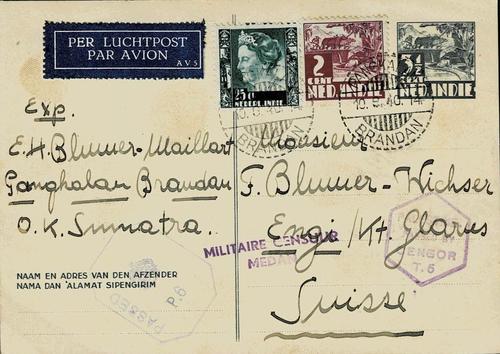 PER LUCHTPOST
PAR AVION
AVS
25ct
NEDERL. INDIE
2
CENT
NED. INDIE
3½
CENT
NED. INDIE
10.5.40.14
BRANDAN
10.5.40.14
BRANDAN
Exp.
E.H. Blumer-Maillart
Pangkalan Brandan
O.K. Sumatra.
Monsieur
F. Blumer-Wichser
Engi/Kt. Glarus
Suisse
MILITAIRE CENSUUR
MEDAN
CENSOR
T.5
PASSED
P.6
NAAM EN ADRES VAN DEN AFZENDER
NAMA DAN 'ALAMAT SIPENGIRIM